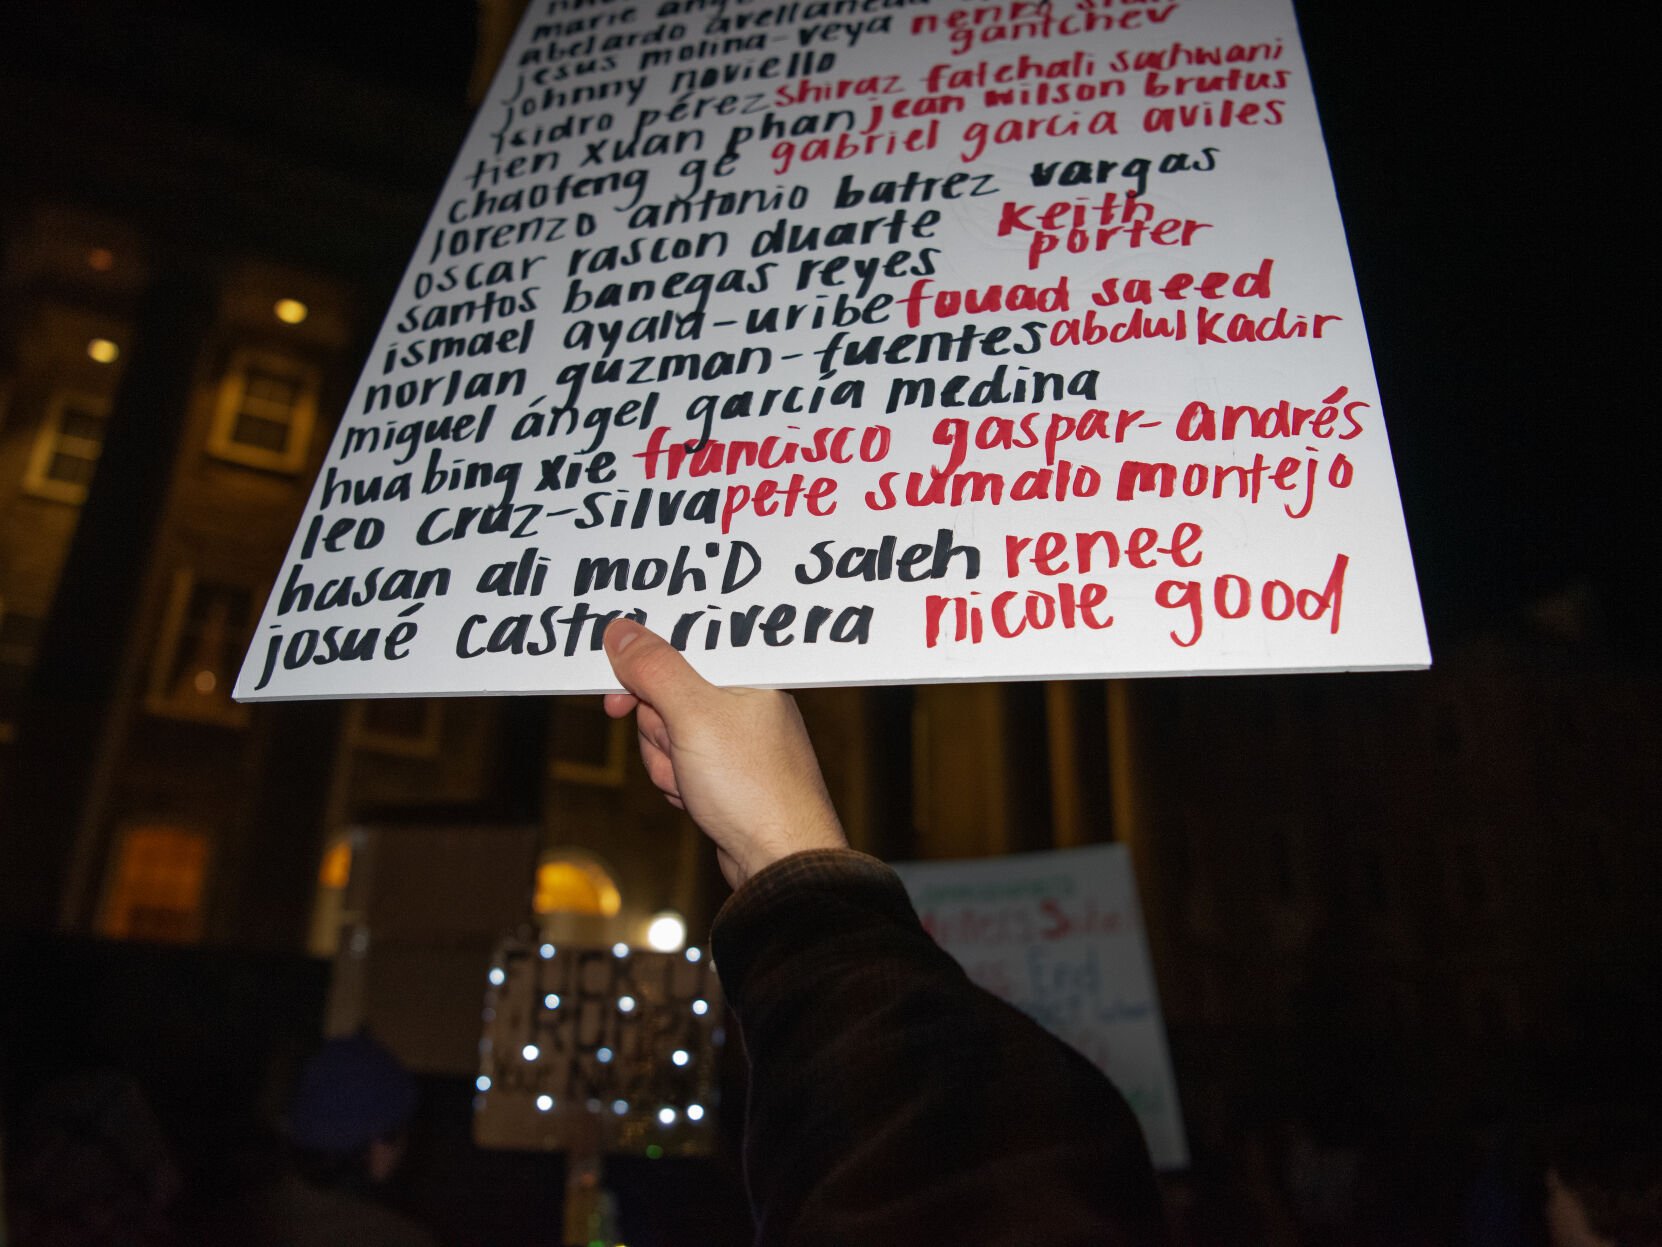 marie
abelardo avellaneda
jesus molina-veya
gantchev
johnny noviello
isidro pérez shiraz fatehali sachwani
tien xuan phan jean wilson brutus
chaofeng ge gabriel garcia aviles
lorenzo antonio batrez vargas
oscar rascon duarte keith
porter
santos banegas reyes
ismael ayala-uribe fouad saeed
norlan guzman-fuentes abdulkadir
miguel ángel garcía medina
huabing xie francisco gaspar-andrés
leo cruz-silva pete sumalo montejo
hasan ali moh'D saleh renee
josué castro rivera nicole good
End